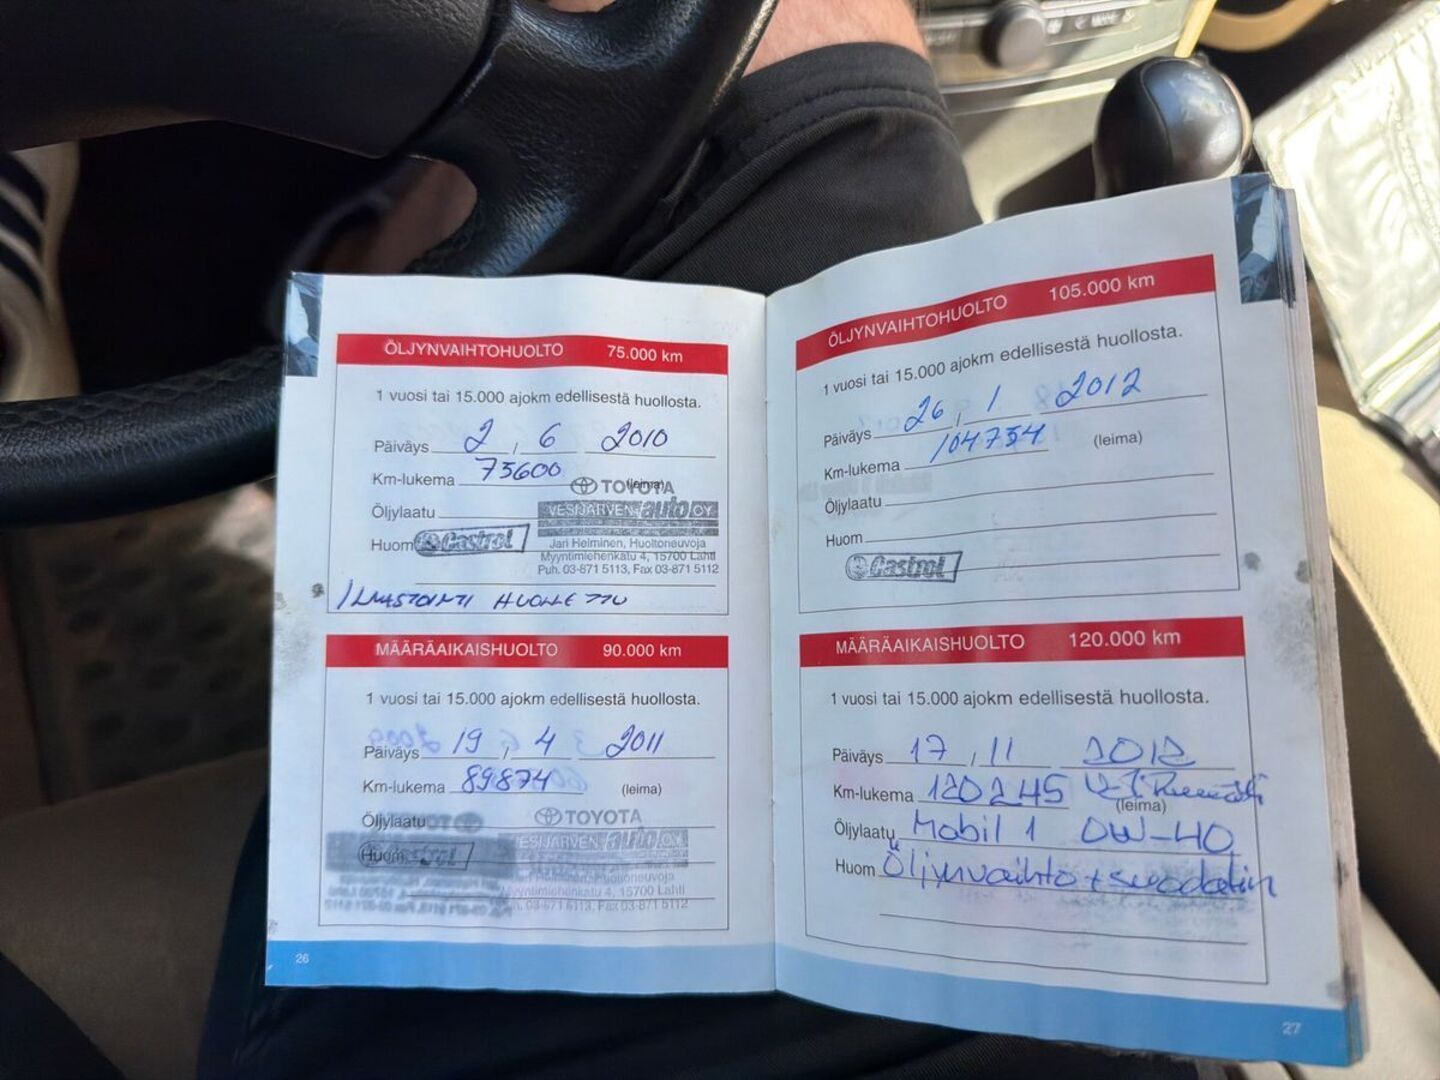 ÖLJYNVAIHTOHUOLTO 75.000 km
1 vuosi tai 15.000 ajokm edellisestä huollosta.
Päiväys 2 , 6 2010
Km-lukema 73600 (leima)
TOYOTA
Öljylaatu
VESIJÄRVEN auto OY
Huom Castrol
Jari Helminen, Huoltoneuvoja
Myyntimiehenkatu 4, 15700 Lahti
Puh. 03-871 5113, Fax 03-871 5112
ILMASTOINTI HUOLLETTU
MÄÄRÄAIKAISHUOLTO 90.000 km
1 vuosi tai 15.000 ajokm edellisestä huollosta.
Päiväys 19 , 4 2011
Km-lukema 89874 (leima)
TOYOTA
Öljylaatu
VESIJÄRVEN auto OY
Huom
Myyntimiehenkatu 4, 15700 Lahti
Puh. 03-871 5113, Fax 03-871 5112
26
ÖLJYNVAIHTOHUOLTO 105.000 km
1 vuosi tai 15.000 ajokm edellisestä huollosta.
Päiväys 26 , 1 2012
Km-lukema 104734 (leima)
Öljylaatu
Huom
Castrol
MÄÄRÄAIKAISHUOLTO 120.000 km
1 vuosi tai 15.000 ajokm edellisestä huollosta.
Päiväys 17 , 11 2012
Km-lukema 120245
(leima)
Öljylaatu Mobil 1 0W-40
Huom Öljynvaihto + suodatin
27